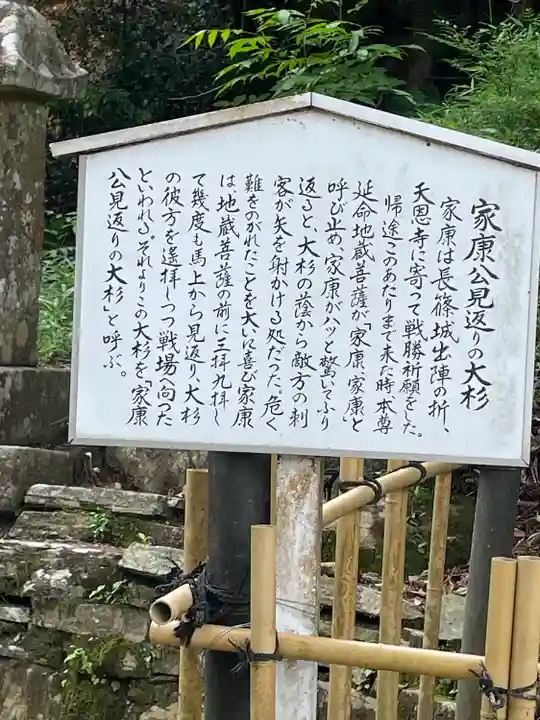 家康公見返りの大杉
家康は長篠城出陣の折、
天恩寺に寄って戦勝祈願をした。
帰途このあたりまで来た時本尊
延命地蔵菩薩が「家康、家康」と
呼び止め、家康がハッと驚いてふり
返ると、大杉の蔭から敵方の刺
客が矢を射かける処だった。危く
難をのがれたことを大いに喜び家康
は、地蔵菩薩の前に三拝九拝し
て幾度も馬上から見返り、大杉
の彼方を遙拝しつつ戦場へ向った
といわれる。それよりこの大杉を「家康
公見返りの大杉」と呼ぶ。